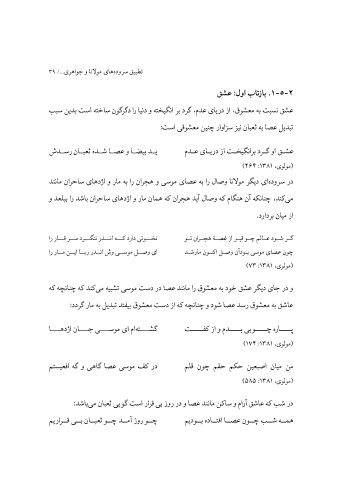 تطبیق سروده‌های مولانا و جواهری.../ ۳۹
۲-۵-۱. بازتاب اول: عشق
عشق نسبت به معشوق، از دریای عدم، گرد بر انگیخته و دنیا را دگرگون ساخته است بدین سبب
تبدیل عصا به ثعبان نیز سزاوار چنین معشوقی است:
عشق او گرد برانگیخت از دریای عدم    ید بیضا و عصا شده ثعبان رسدش
(مولوی، ۱۳۸۱: ۴۶۴)
در سروده‌ای دیگر مولانا وصال را به عصای موسی و هجران را به مار و اژدهای ساحران مانند
می‌کند، چنانکه آن هنگام که وصال آید هجران که همان مار و اژدهای ساحران باشد را ببلعد و
از میان بردارد.
گر شود عالم چو قیر از غصهٔ هجران تو    نخوتی دارد که اندر ننگرد مر قار را
چون عصای موسی بودآن وصل اکنون مارشد    ای وصل موسی وش اندر ربا این مار را
(مولوی، ۱۳۸۱: ۷۳)
و در جای دیگر عشق خود به معشوق را مانند عصا در دست موسی تشبیه می‌کند که چنانچه که
عاشق به معشوق رسد عصا شود و چنانچه که از دست معشوق بیفتد تبدیل به مار گردد:
پاره چوبی بدم و از کفت    گشته‌ام ای موسی جان اژدها
(مولوی، ۱۳۸۱: ۱۷۴)
من میان اصبعین حکم حقم چون قلم    در کف موسی عصا گاهی و گه افعیستم
(مولوی، ۱۳۸۱: ۵۸۵)
در شب که عاشق آرام و ساکن مانند عصا و در روز بی قرار است گویی ثعبان می‌باشد:
همه شب چون عصا افتاده بودیم    چو روز آمد چو ثعبان بی قراریم